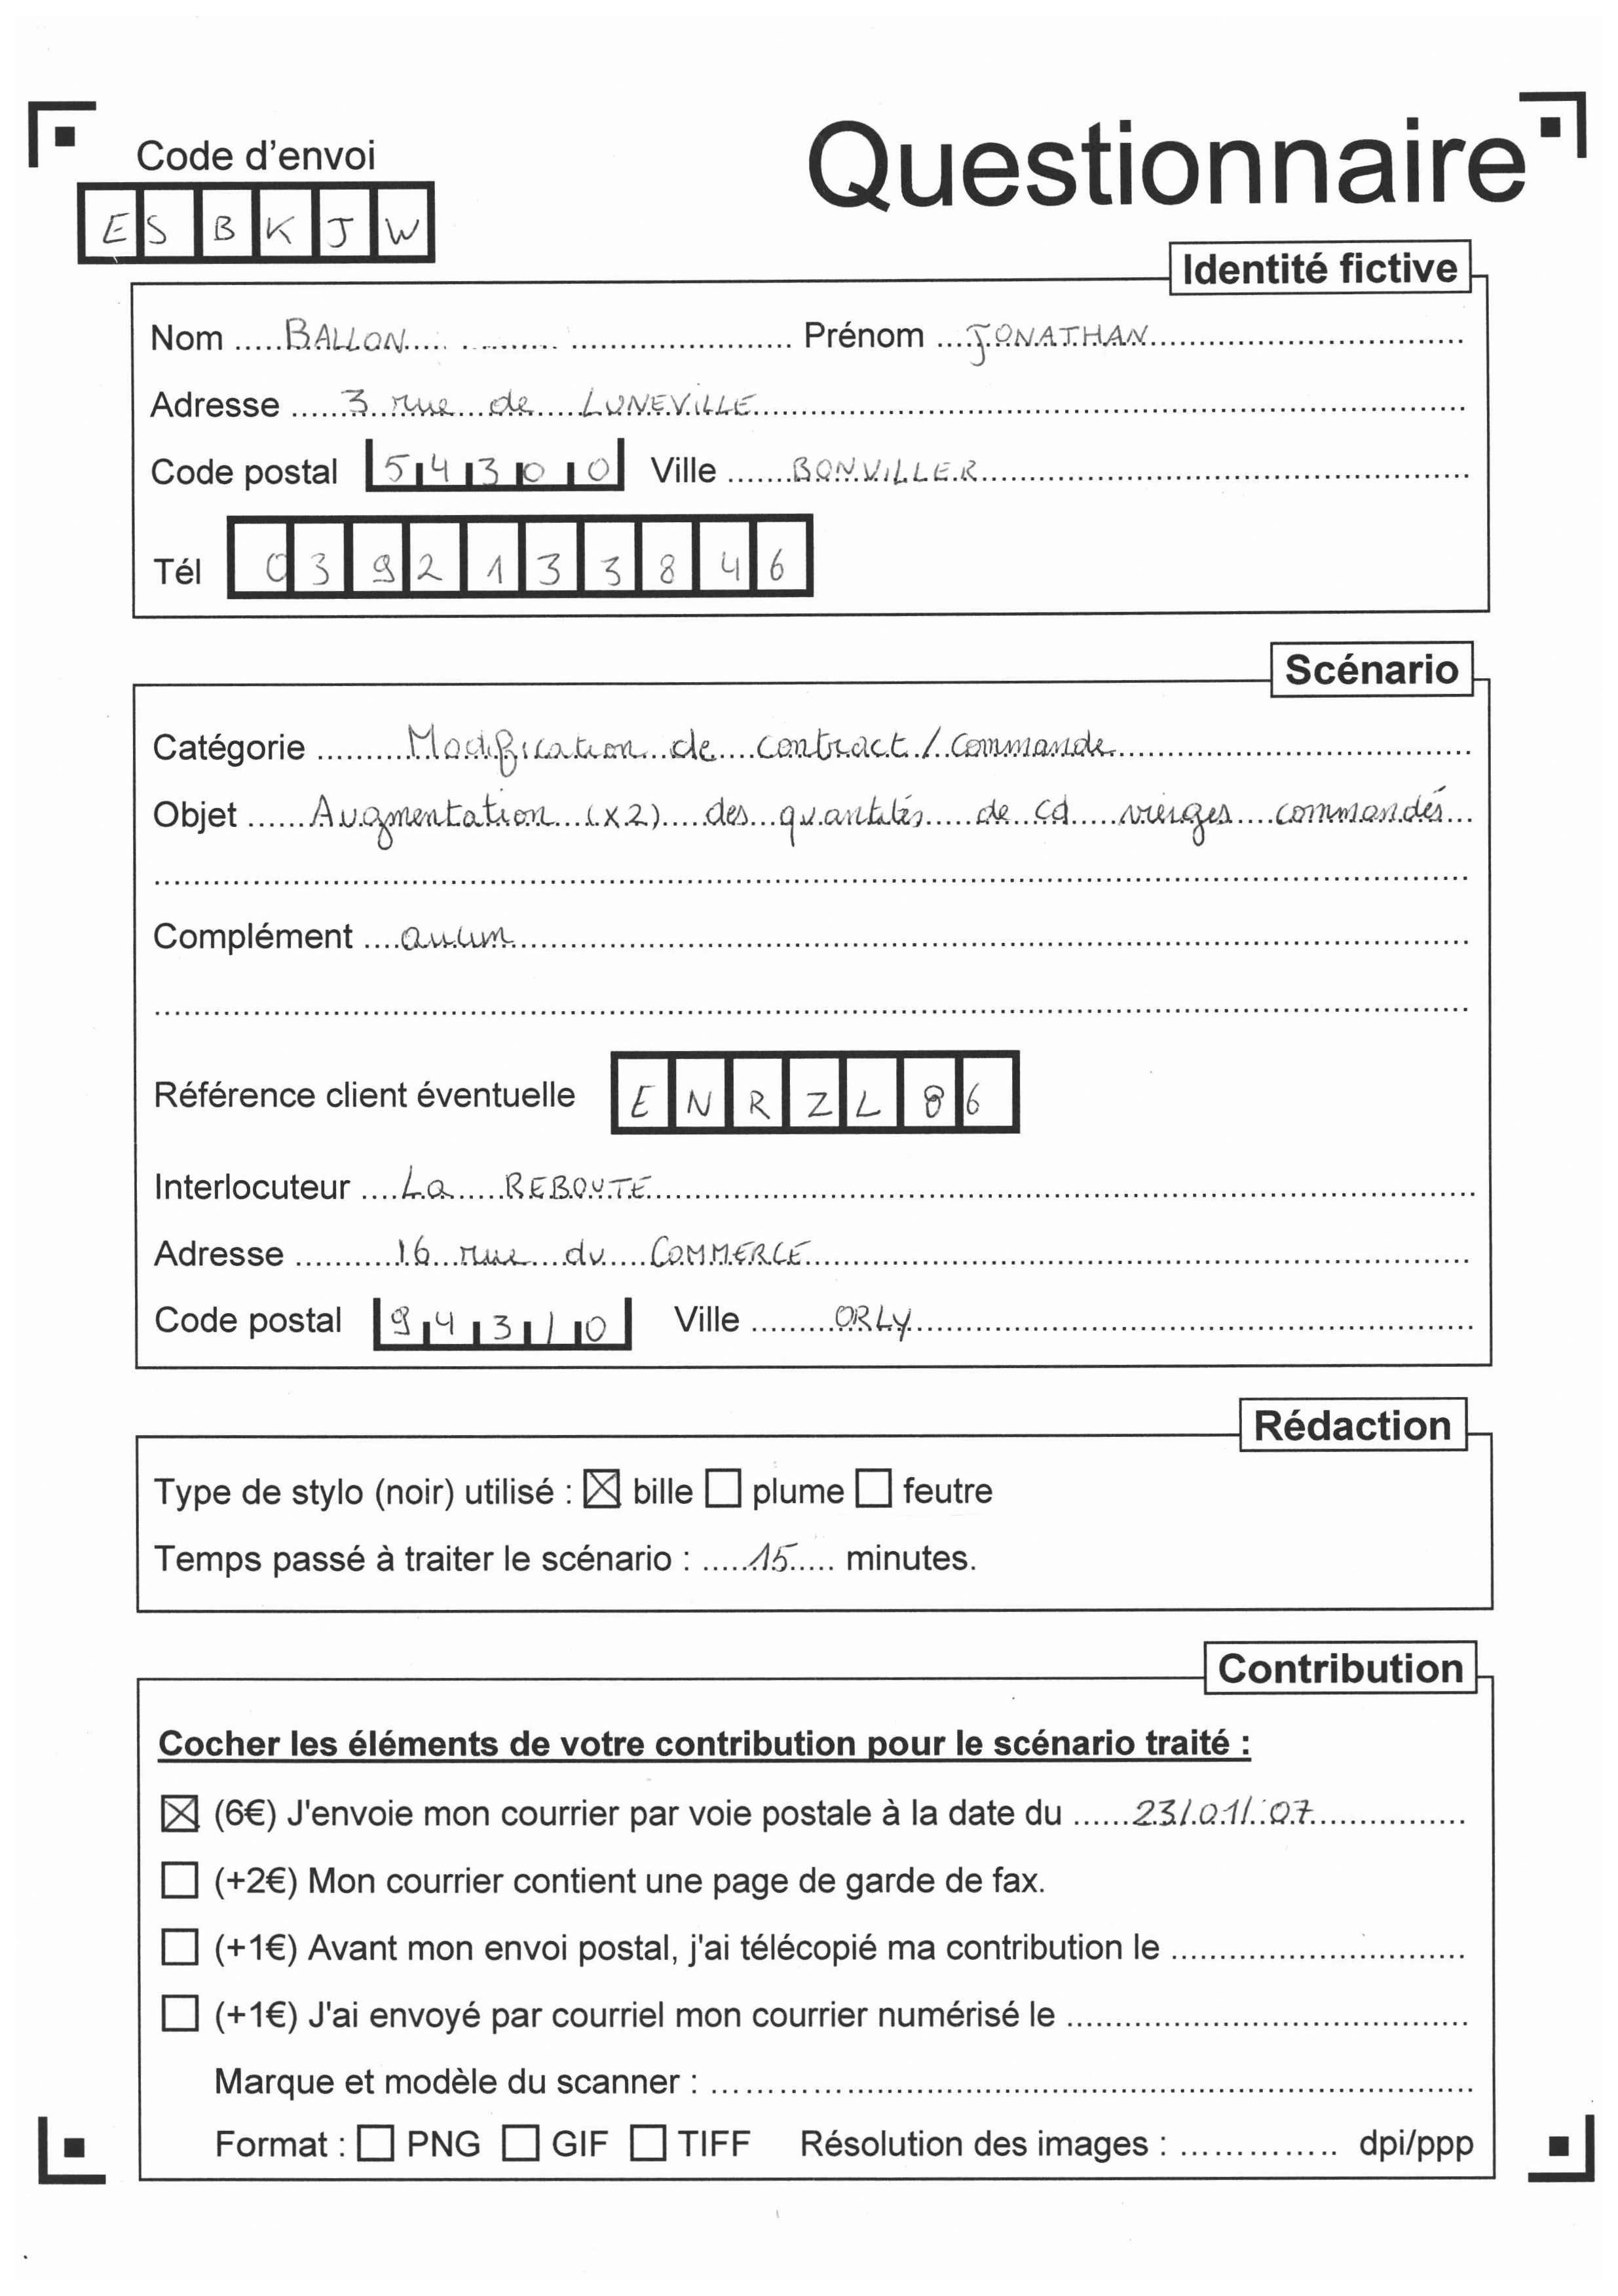 Code d'envoi
Questionnaire
ESBKJW
Identité fictive
Nom BALLON Prénom JONATHAN
Adresse 3 rue de LUNEVILLE
Code postal 54300 Ville BONVILLER
Tél 0392133846
Scénario
Catégorie Modification de contract / commande
Objet Augmentation (x2) des quantités de cd vierges commandés
Complément aucun
Référence client éventuelle ENRZL86
Interlocuteur La REBOUTE
Adresse 16 rue du COMMERCE
Code postal 94310 Ville ORLY
Rédaction
Type de stylo (noir) utilisé : ☒ bille ☐ plume ☐ feutre
Temps passé à traiter le scénario : 15 minutes.
Contribution
Cocher les éléments de votre contribution pour le scénario traité :
☒ (6€) J'envoie mon courrier par voie postale à la date du 23/01/07
☐ (+2€) Mon courrier contient une page de garde de fax.
☐ (+1€) Avant mon envoi postal, j'ai télécopié ma contribution le
☐ (+1€) J'ai envoyé par courriel mon courrier numérisé le
Marque et modèle du scanner :
Format : ☐ PNG ☐ GIF ☐ TIFF Résolution des images : dpi/ppp